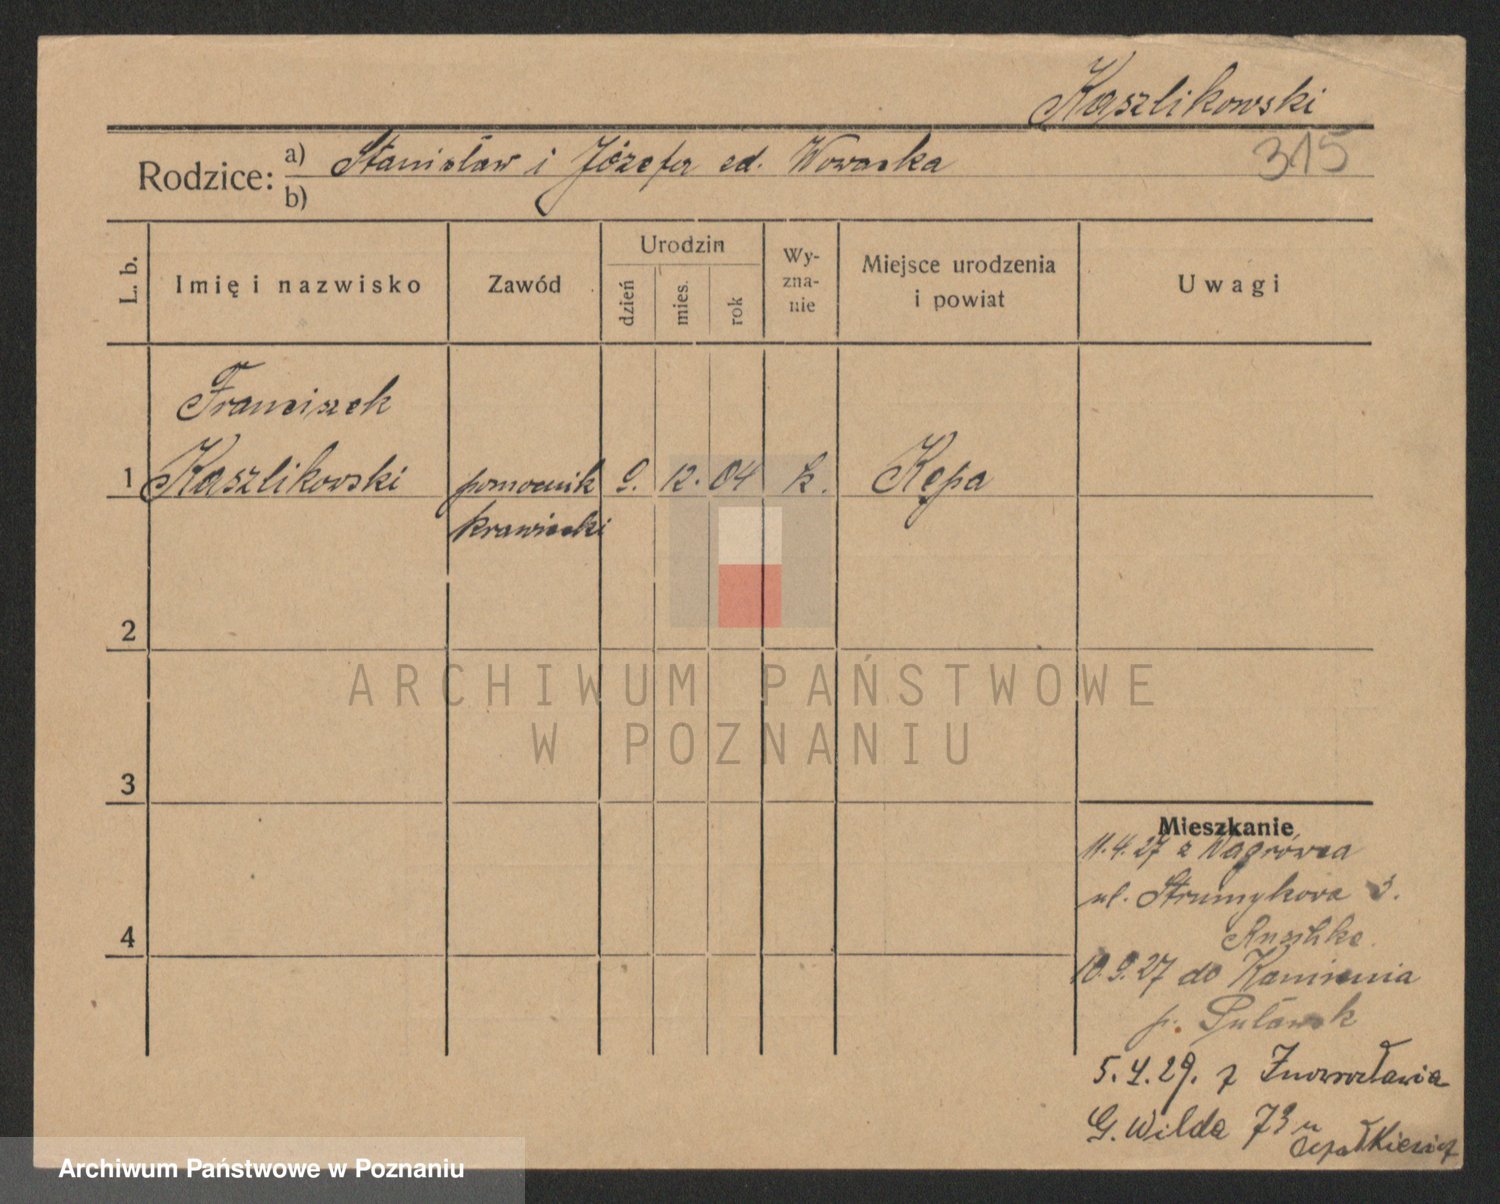 Kaszlikowski
315
Rodzice: a) Stanisław i Józefa cd. Nowacka
b)
L. b.
Imię i nazwisko
Zawód
Urodzin
dzień
mies.
rok
Wy-
zna-
nie
Miejsce urodzenia
i powiat
Uwagi
Franciszek
1 Kaszlikowski pomocnik 9. 12. 04 k. Kępa
krawiecki
2
3
4
ARCHIWUM PAŃSTWOWE
W POZNANIU
Mieszkanie
11.4.27 z Wągrówca
ul. Strumykowa 3.
10.9.27 do Kamienia
p. Puławsk
5.4.29. z Inowrocławia
G. Wilda 73 u
Archiwum Państwowe w Poznaniu